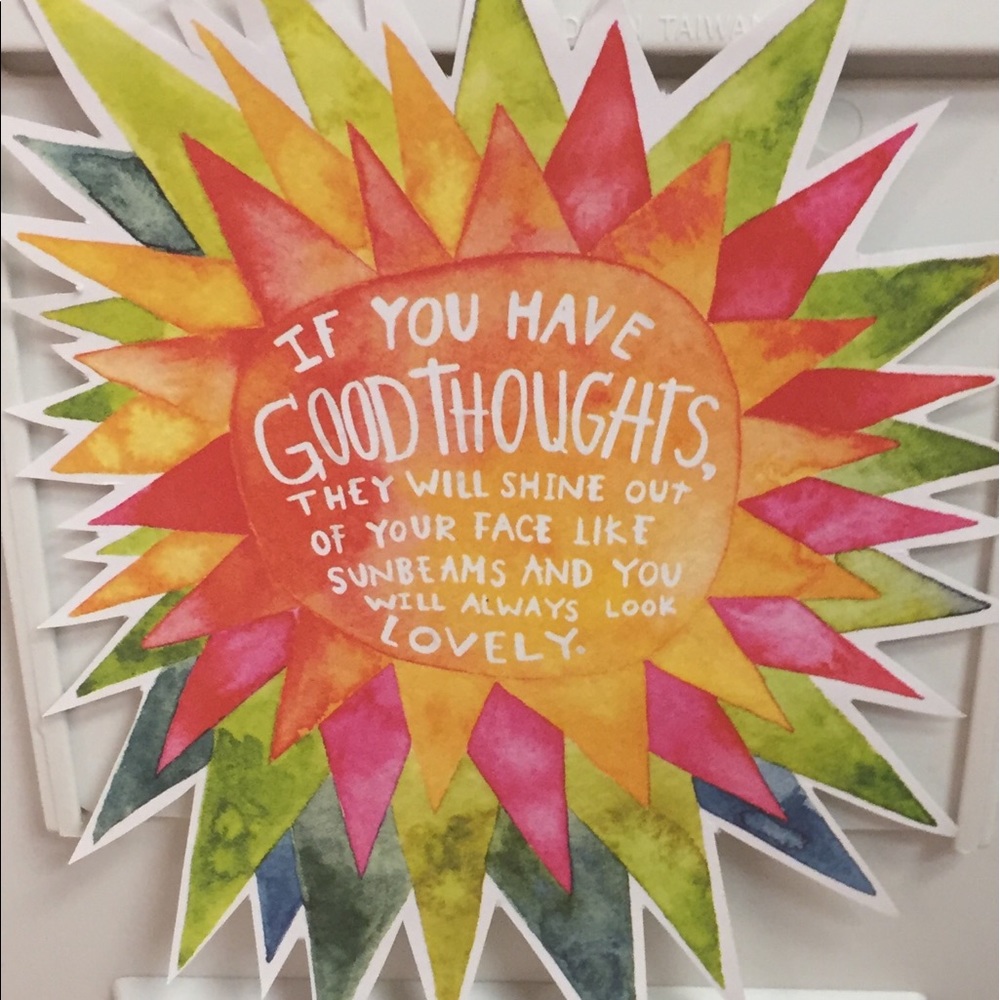 TAIWAN
IF YOU HAVE
GOOD THOUGHTS,
THEY WILL SHINE OUT
OF YOUR FACE LIKE
SUNBEAMS AND YOU
WILL ALWAYS LOOK
LOVELY.